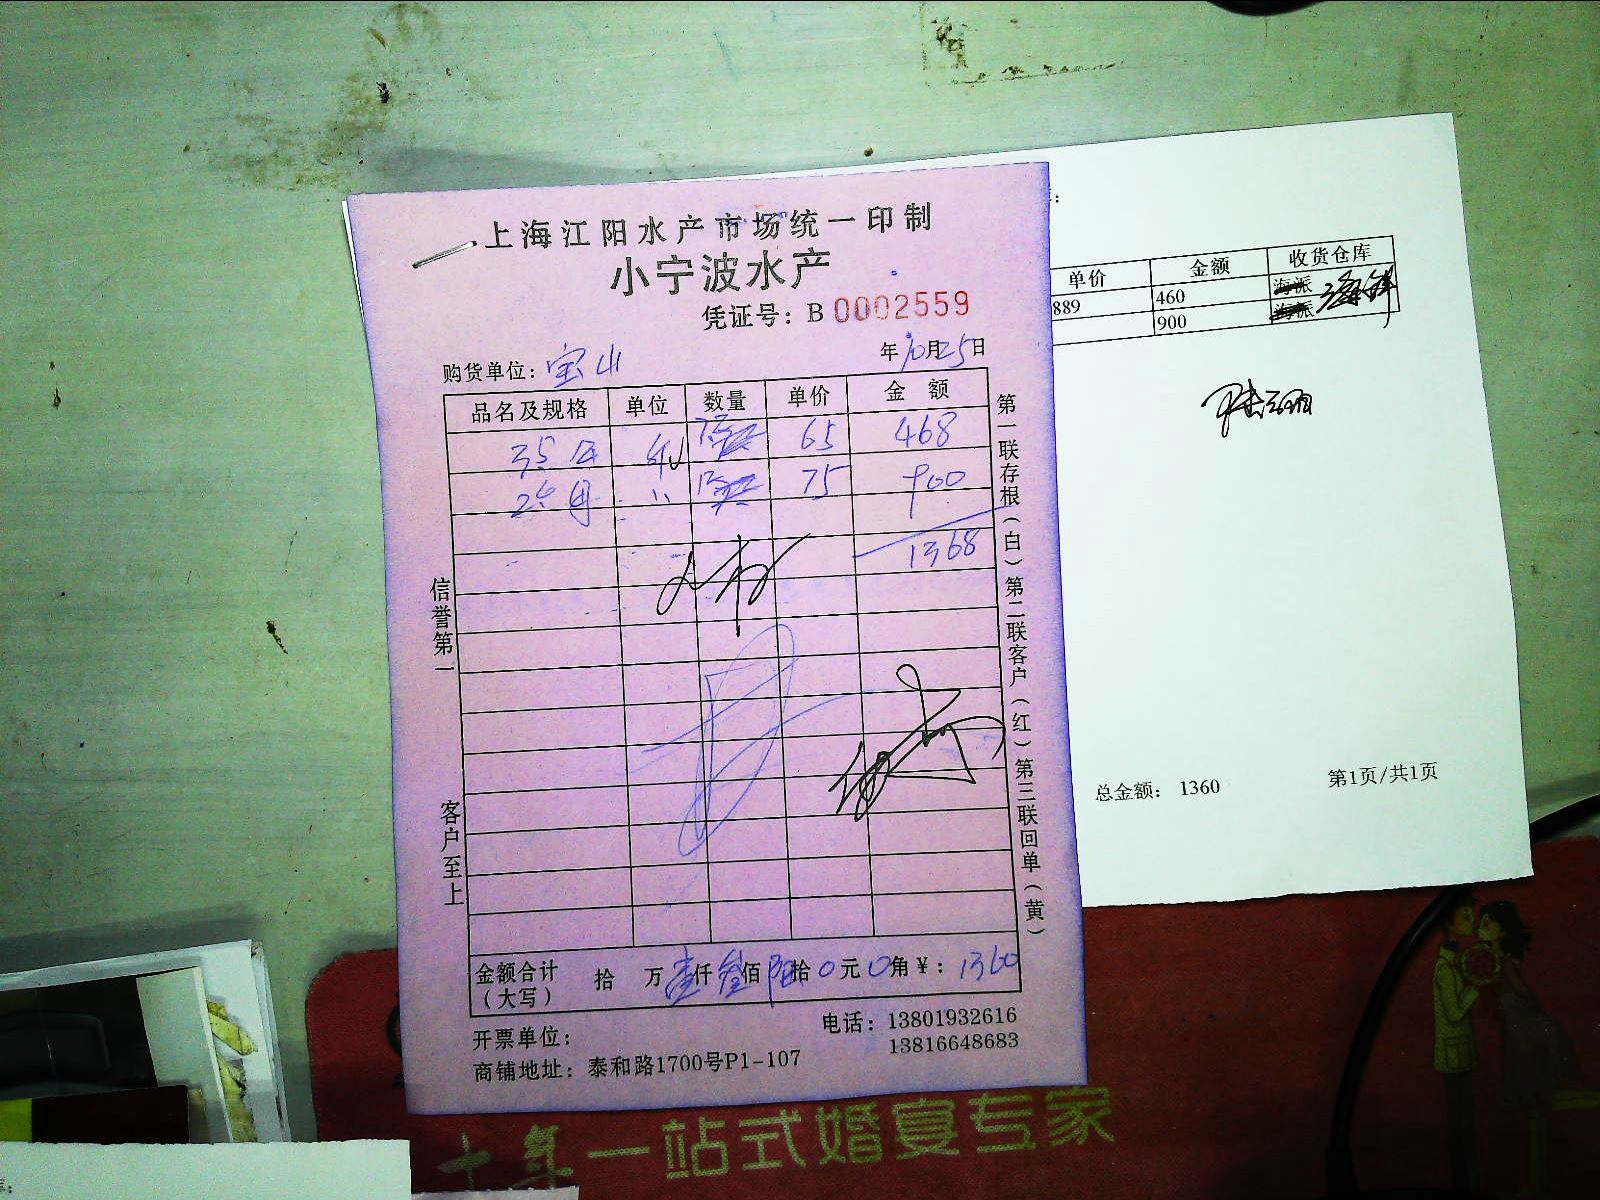 上海江阳水产市场统一印制
小宁波水产
凭证号：B 0002559
购货单位：宝山 年10月25日
品名及规格 单位 数量 单价 金额
65 468
75 900
1368
信誉第一
客户至上
第一联存根（白）第二联客户（红）第三联回单（黄）
金额合计（大写） 拾 万壹仟叁佰陆拾0元0角￥：1360
开票单位：
电话：13801932616
13816648683
商铺地址：泰和路1700号P1-107
单价 金额 收货仓库
889 460 海派
900 海派
总金额： 1360
第1页/共1页
十年一站式婚宴专家